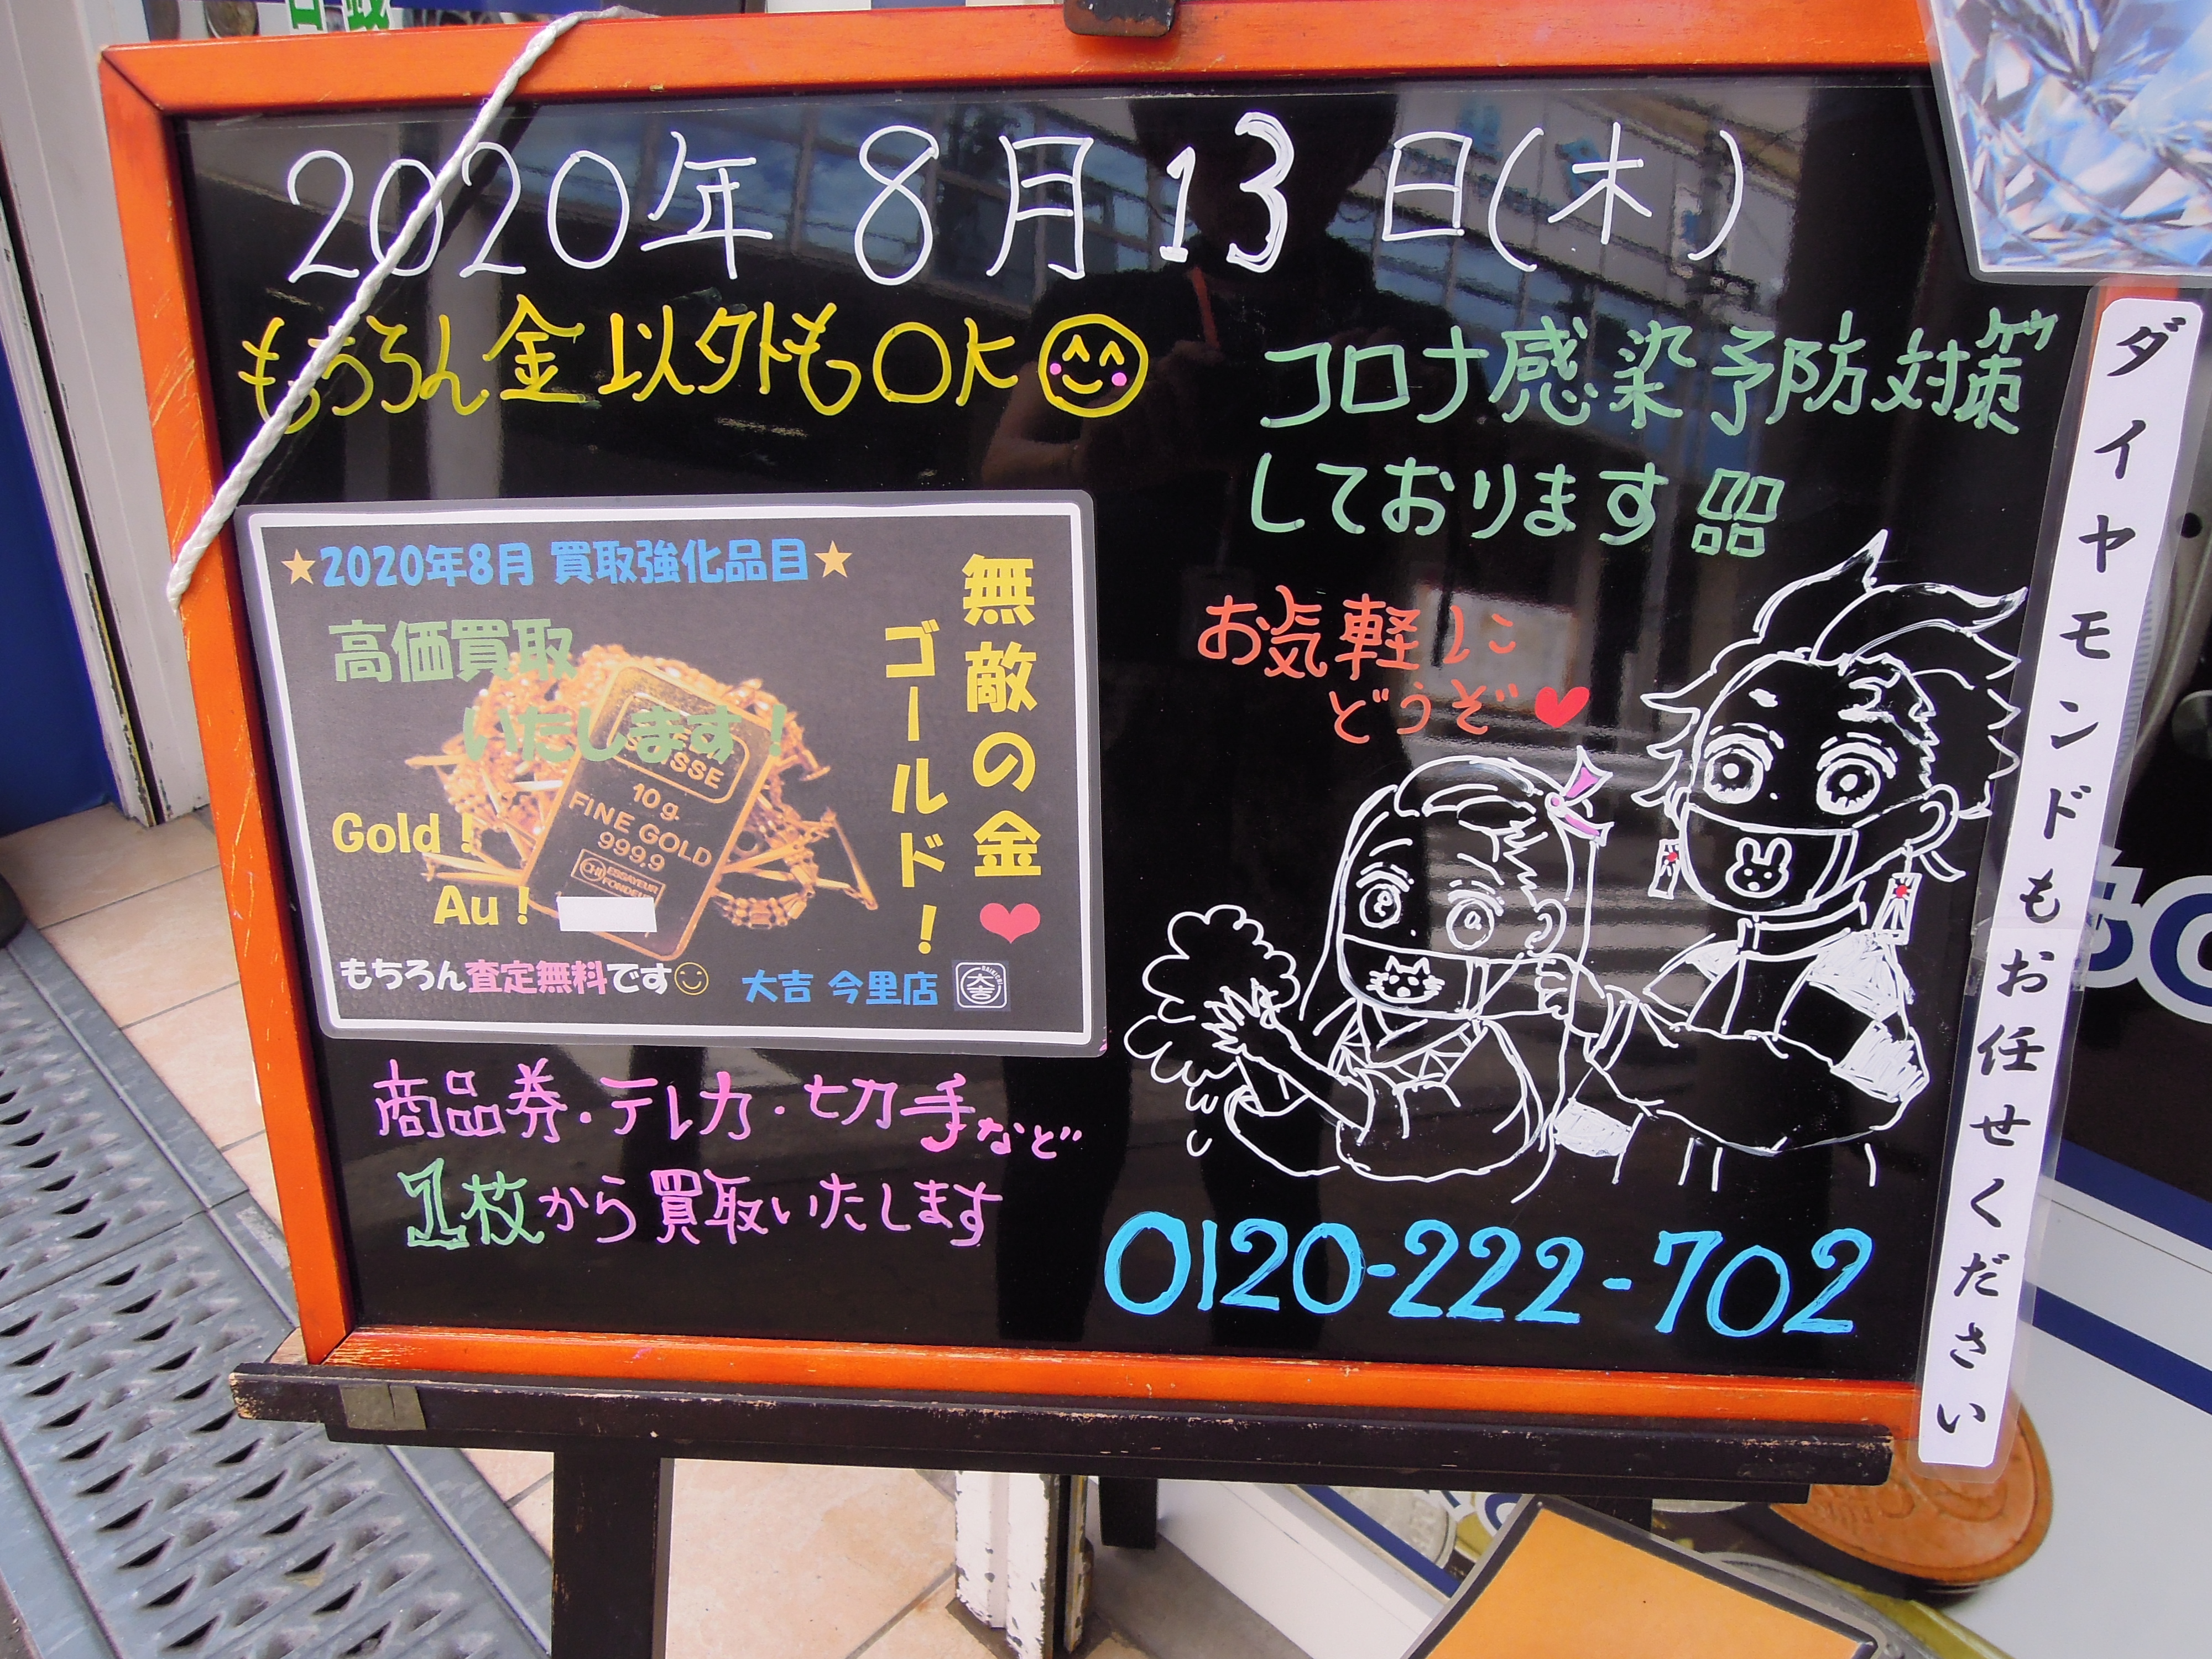 2020年 8月 13日(木)
もちろん金以外もOK
コロナ感染予防対策
しております
お気軽に
どうぞ
★2020年8月 買取強化品目★
高価買取
いたします!
無敵の金
ゴールド!
SUISSE
10g
FINE GOLD
999.9
CHI ESSAYEUR
FONDEUR
Gold!
Au!
もちろん査定無料です
大吉 今里店
商品券・テレカ・切手など
1枚から買取いたします
0120-222-702
ダイヤモンドもお任せください